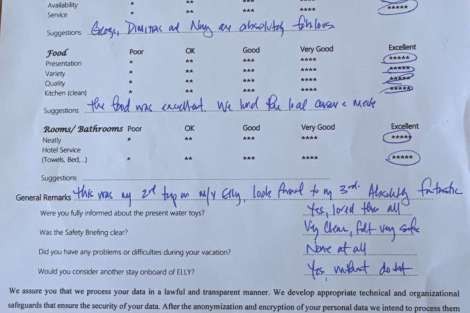 Availability * ** *** **** *****
Service * ** *** **** *****
Suggestions George, Dimitris and are absolutely fabulous
Food Poor OK Good Very Good Excellent
Presentation * ** *** **** *****
Variety * ** *** **** *****
Quality * ** *** **** *****
Kitchen (clean) * ** *** **** *****
Suggestions the food was excellent. We loved the local made
Rooms/ Bathrooms Poor OK Good Very Good Excellent
Neatly * ** *** **** *****
Hotel Service
(Towels, Bed,..) * ** *** **** *****
Suggestions
General Remarks this was my 2nd trip on M/Y Elly, look forward to my 3rd. Absolutely fantastic
Were you fully informed about the present water toys? Yes, loved them all
Was the Safety Briefing clear? Very Clear, felt very safe
Did you have any problems or difficulties during your vacation? None at all
Would you consider another stay onboard of ELLY? Yes, without doubt
We assure you that we process your data in a lawful and transparent manner. We develop appropriate technical and organizational
safeguards that ensure the security of your data. After the anonymization and encryption of your personal data we intend to process them